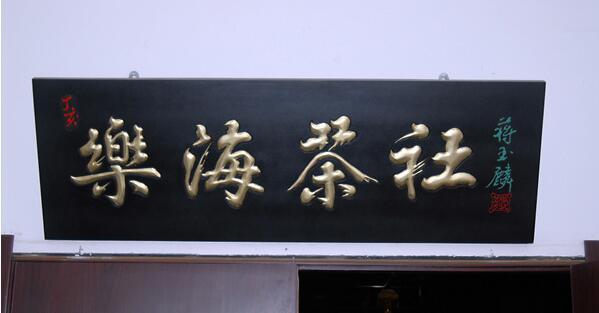 丁亥
樂海茶社
蒋玉麟